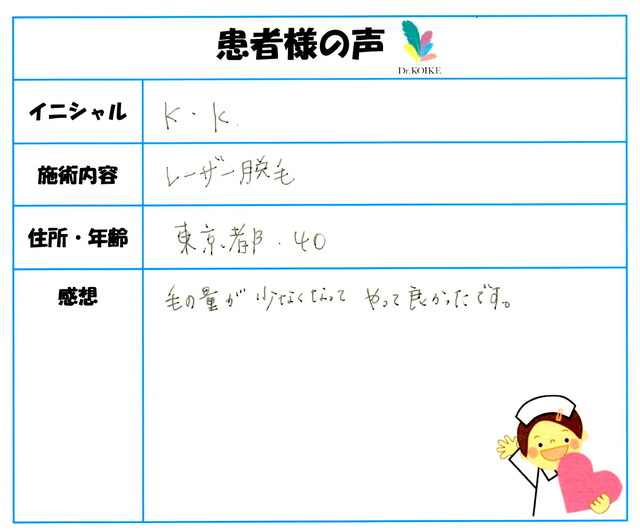 患者様の声
Dr.KOIKE
イニシャル
K・K.
施術内容
レーザー脱毛
住所・年齢
東京都・40
感想
毛の量が少なくなって やって良かったです。